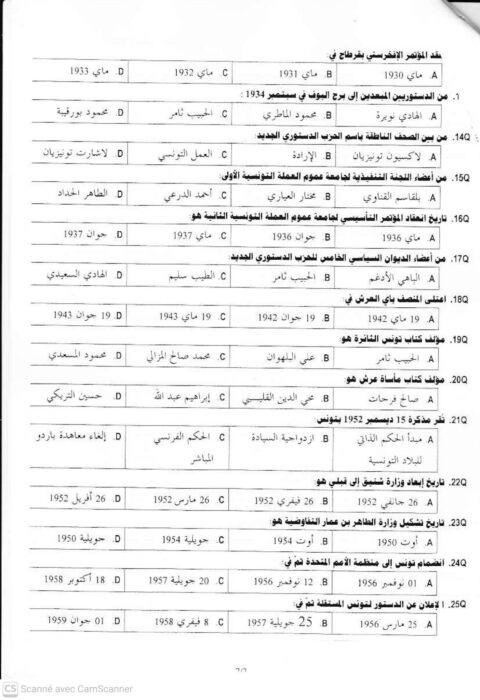 عقد المؤتمر الإفخرستي بقرطاج في:
A. ماي 1930 B. ماي 1931 C. ماي 1932 D. ماي 1933
1. من الدستوريين المبعدين إلى برج البوف في سبتمبر 1934 :
A. الهادي نويرة B. محمود الماطري C. الحبيب ثامر D. محمود بورقيبة
14Q. من بين الصحف الناطقة باسم الحزب الدستوري الجديد:
A. لاكسيون تونيزيان B. الإرادة C. العمل التونسي D. لاشارت تونيزيان
15Q. من أعضاء اللجنة التنفيذية لجامعة عموم العملة التونسية الأولى:
A. بلقاسم القناوي B. مختار العياري C. أحمد الدرعي D. الطاهر الحداد
16Q. تاريخ انعقاد المؤتمر التأسيسي لجامعة عموم العملة التونسية الثانية هو:
A. ماي 1936 B. جوان 1936 C. ماي 1937 D. جوان 1937
17Q. من أعضاء الديوان السياسي الخامس للحزب الدستوري الجديد:
A. الباهي الأدغم B. الحبيب ثامر C. الطيب سليم D. الهادي السعيدي
18Q. اعتلى المنصف باي العرش في:
A. 19 ماي 1942 B. 19 جوان 1942 C. 19 ماي 1943 D. 19 جوان 1943
19Q. مؤلف كتاب تونس الثائرة هو:
A. الحبيب ثامر B. علي البلهوان C. محمد صالح المزالي D. محمود المسعدي
20Q. مؤلف كتاب مأساة عرش هو:
A. صالح فرحات B. محي الدين القليبي C. إبراهيم عبد الله D. حسين التريكي
21Q. تقر مذكرة 15 ديسمبر 1952 بتونس:
A. مبدأ الحكم الذاتي B. ازدواجية السيادة C. الحكم الفرنسي D. إلغاء معاهدة باردو
للبلاد التونسية المباشر
22Q. تاريخ إبعاد وزارة شنيق إلى قبلي هو
A. 26 جانفي 1952 B. 26 فيفري 1952 C. 26 مارس 1952 D. 26 أفريل 1952
23Q. تاريخ تشكيل وزارة الطاهر بن عمار التفاوضية هو:
A. أوت 1950 B. أوت 1954 C. جويلية 1954 D. جويلية 1950
24Q. انضمام تونس إلى منظمة الأمم المتحدة تمّ في:
A. 01 نوفمبر 1956 B. 12 نوفمبر 1956 C. 20 جويلية 1957 D. 18 أكتوبر 1958
25Q. الإعلان عن الدستور لتونس المستقلة تمّ في:
A. 25 مارس 1956 B. 25 جويلية 1957 C. 8 فيفري 1958 D. 01 جوان 1959
CS Scanné avec CamScanner